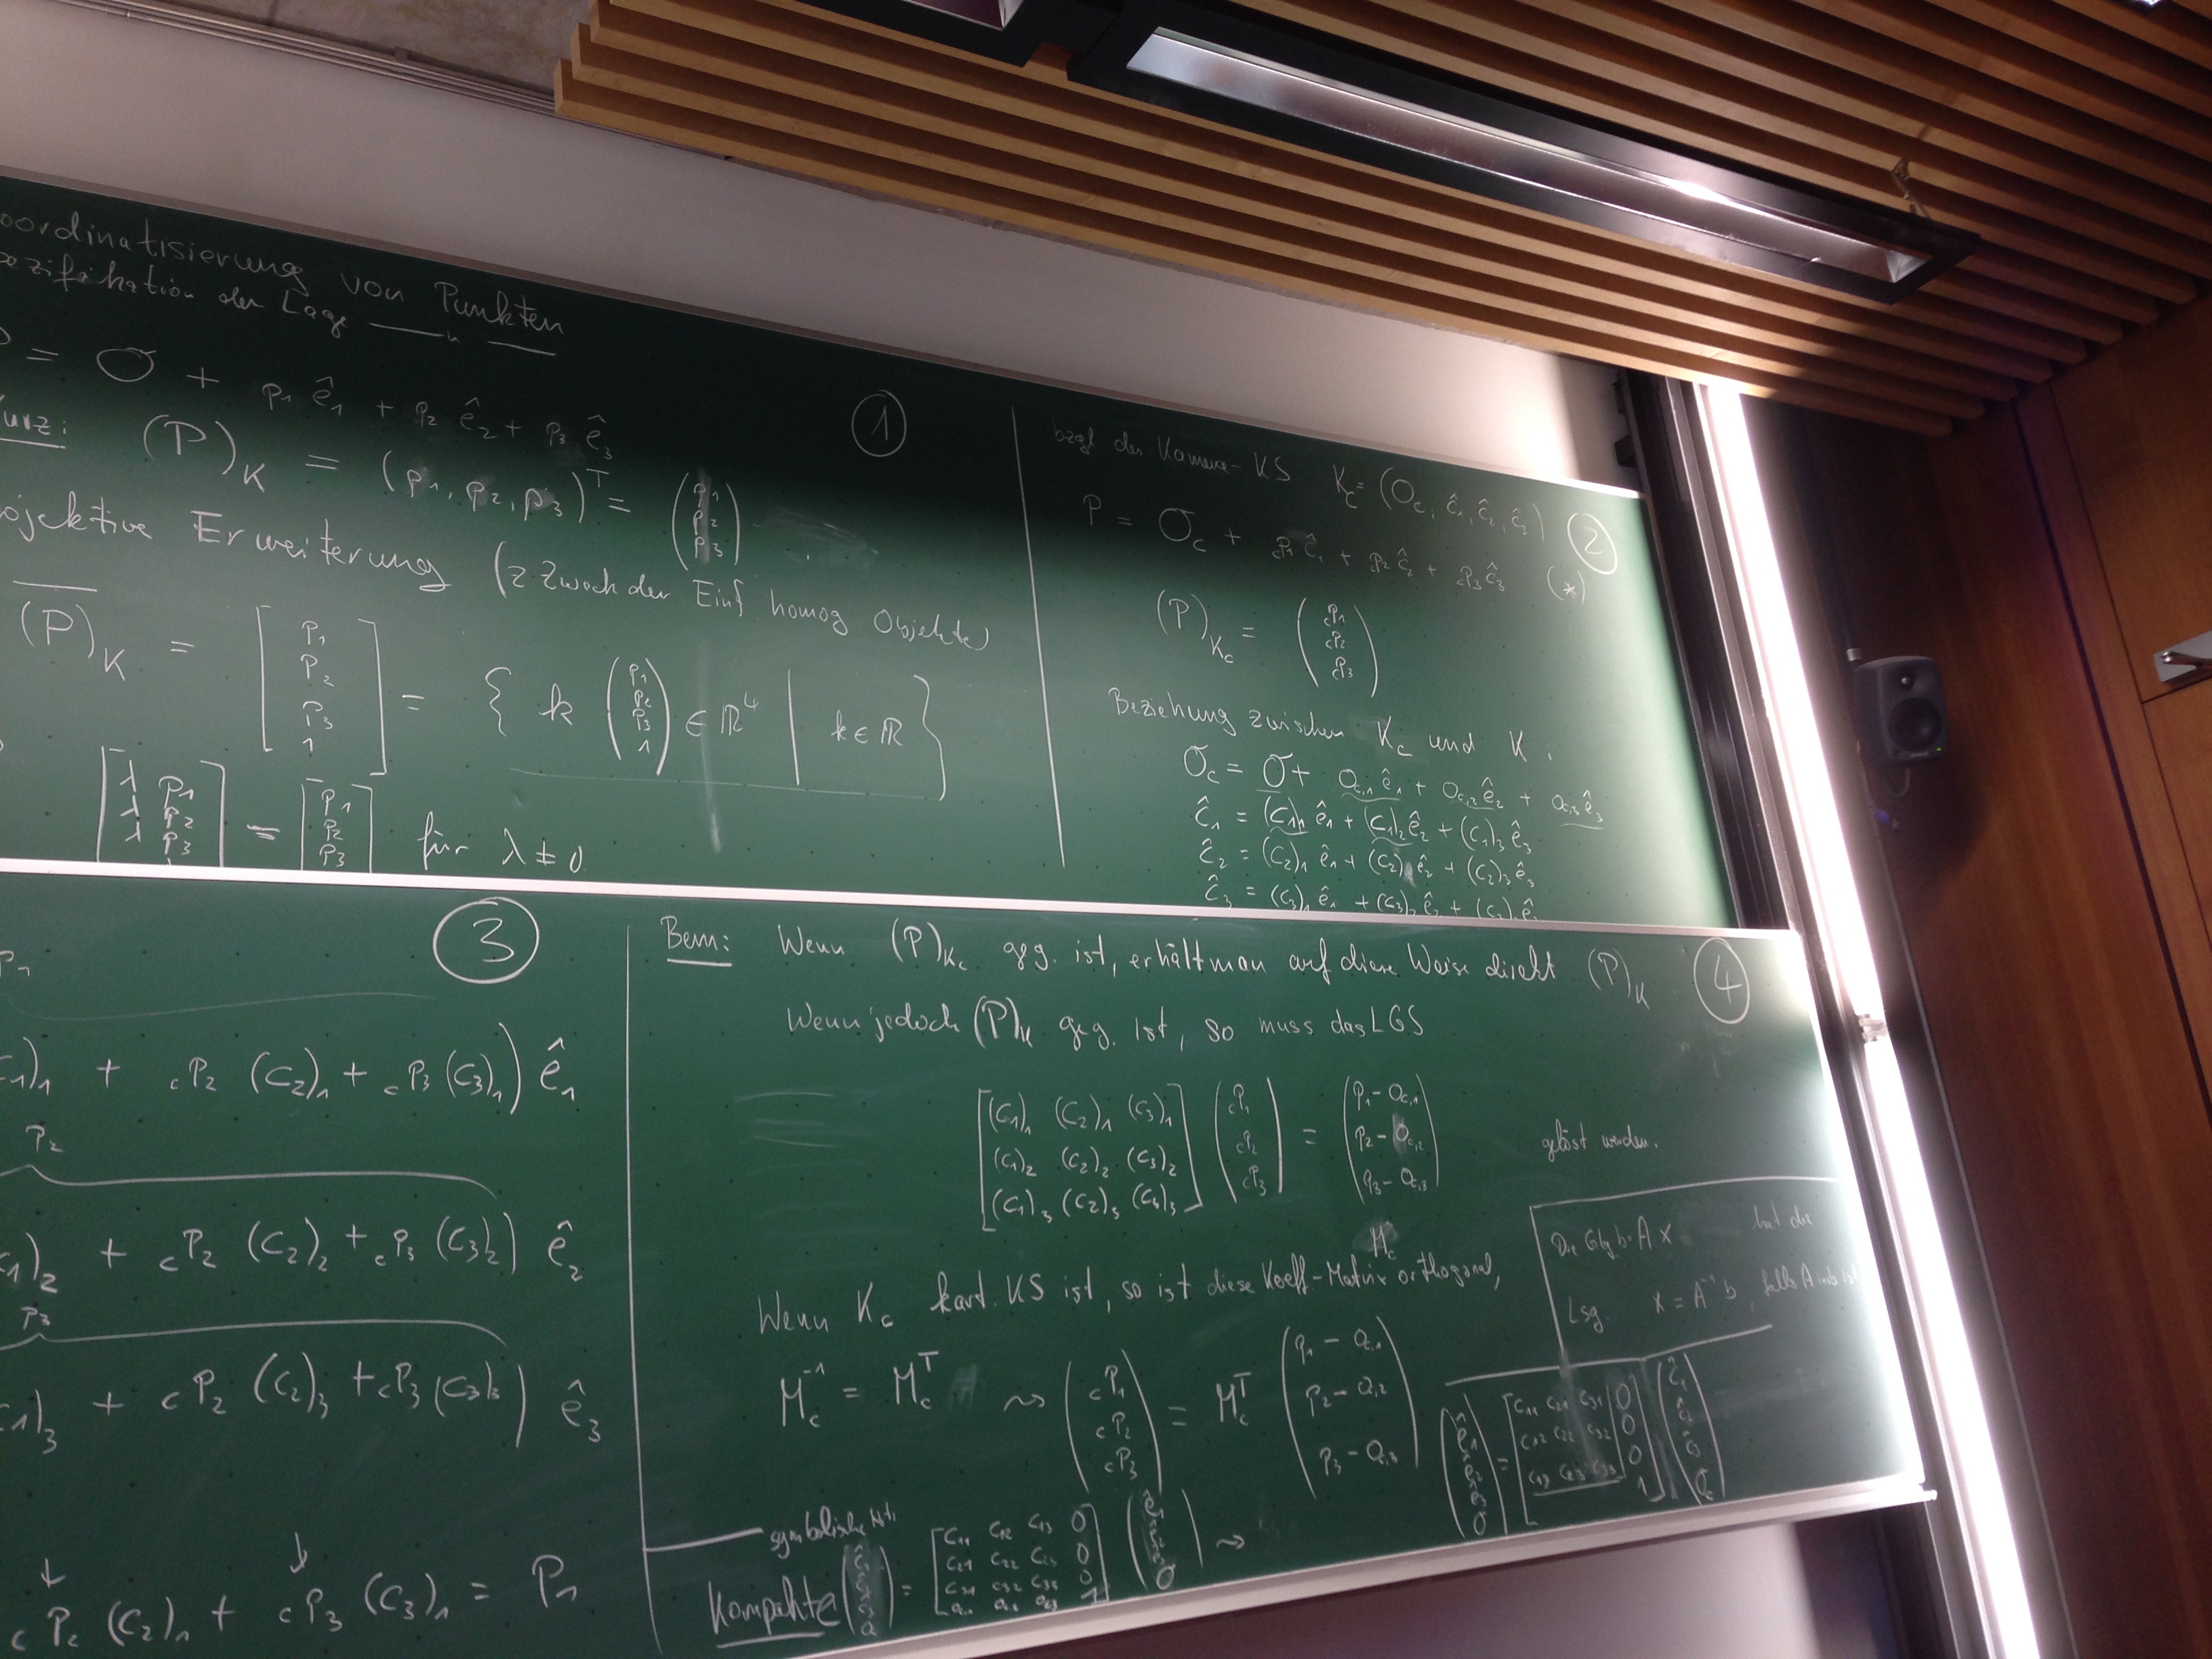 oordinatisierung von Punkten
ezifikation der Lage —— " ——
= O + p₁ ê₁ + p₂ ê₂ + p₃ ê₃
urz: (P)_K = (p₁, p₂, p₃)ᵀ = (p₁ p₂ p₃)
①
ojektive Erweiterung (z Zweck der Einf homog Objekte)
(P)_K = [p₁ p₂ p₃ 1] = { k (p₁ p₂ p₃ 1) ∈ ℝ⁴ | k ∈ ℝ }
[λ p₁ λ p₂ λ p₃ = [p₁ p₂ p₃ für λ ≠ 0
bzgl der Kamera-KS K_c = (O_c, ĉ₁, ĉ₂, ĉ₃)
②
P = O_c + cp₁ ĉ₁ + cp₂ ĉ₂ + cp₃ ĉ₃ (*)
(P)_Kc = (cp₁ cp₂ cp₃)
Beziehung zwischen K_c und K.
O_c = O + O_c,1 ê₁ + O_c,2 ê₂ + O_c,3 ê₃
ĉ₁ = (c₁)₁ ê₁ + (c₁)₂ ê₂ + (c₁)₃ ê₃
ĉ₂ = (c₂)₁ ê₁ + (c₂)₂ ê₂ + (c₂)₃ ê₃
ĉ₃ = (c₃)₁ ê₁ + (c₃)₂ ê₂ + (c₃)₃ ê₃
③
P₁
c₁)₁ + cP₂ (c₂)₁ + cP₃ (c₃)₁) ê₁
P₂
c₁)₂ + cP₂ (c₂)₂ + cP₃ (c₃)₂) ê₂
P₃
c₁)₃ + cP₂ (c₂)₃ + cP₃ (c₃)₃) ê₃
↓ ↓
cP₂ (c₂)₁ + cP₃ (c₃)₁ = P₁
Bem: Wenn (P)_Kc geg. ist, erhält man auf diese Weise direkt (P)_K
④
Wenn jedoch (P)_K geg. ist, so muss das LGS
[(c₁)₁ (c₂)₁ (c₃)₁ (cP₁ = (p₁ - O_c,1
(c₁)₂ (c₂)₂ (c₃)₂ cP₂ p₂ - O_c,2
(c₁)₃ (c₂)₃ (c₃)₃] cP₃) p₃ - O_c,3)
gelöst werden.
M_c
Wenn K_c kart. KS ist, so ist diese Koeff-Matrix orthogonal,
M_c⁻¹ = M_cᵀ ⇝ (cP₁ cP₂ cP₃) = M_cᵀ (p₁ - O_c,1 p₂ - O_c,2 p₃ - O_c,3)
Die Glg b = A x hat die
Lsg. x = A⁻¹ b, falls A inv ist
(ê₁ ê₂ ê₃ O) = [c₁₁ c₂₁ c₃₁ 0
c₁₂ c₂₂ c₃₂ 0
c₁₃ c₂₃ c₃₃ 0
1] (ĉ₁ ĉ₂ ĉ₃ O_c)
symbolische
Kompakte
[c₁₁ c₁₂ c₁₃ 0
c₂₁ c₂₂ c₂₃ 0
c₃₁ c₃₂ c₃₃ 0
1]
⇝